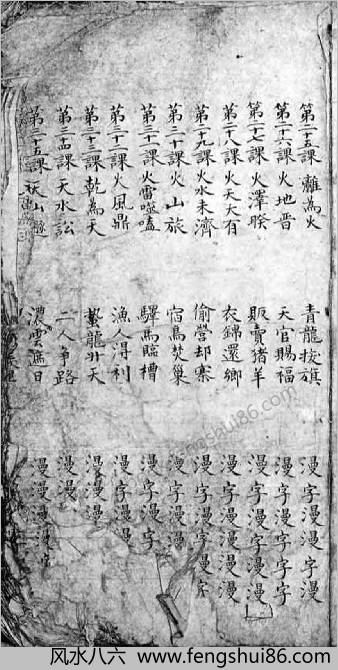 第二十五課 離為火 青龍 旗 漫字漫漫字漫
第二十六課 火地晋 天官賜福 漫字漫字字字
第二十七課 火澤睽 販賣猪羊 漫字漫字漫漫
第二十八課 火天大有 衣錦還鄉 漫字漫漫漫漫
第二十九課 火水未濟 偷營却寨 漫字漫字漫字
第三十課 火山旅 宿鳥焚巢 漫字漫漫
第三十一課 火雷噬嗑 驛馬臨槽 漫字漫字
第三十二課 火風鼎 漁人得利 漫字漫漫
第三十三課 乾為天 蟄龍升天 漫漫漫漫
第三十四課 天水訟 二人争路 漫漫漫
第三十五課 山 濃雲 日 漫漫漫
风水八六 www.fengshui86.com
fengshui86.com